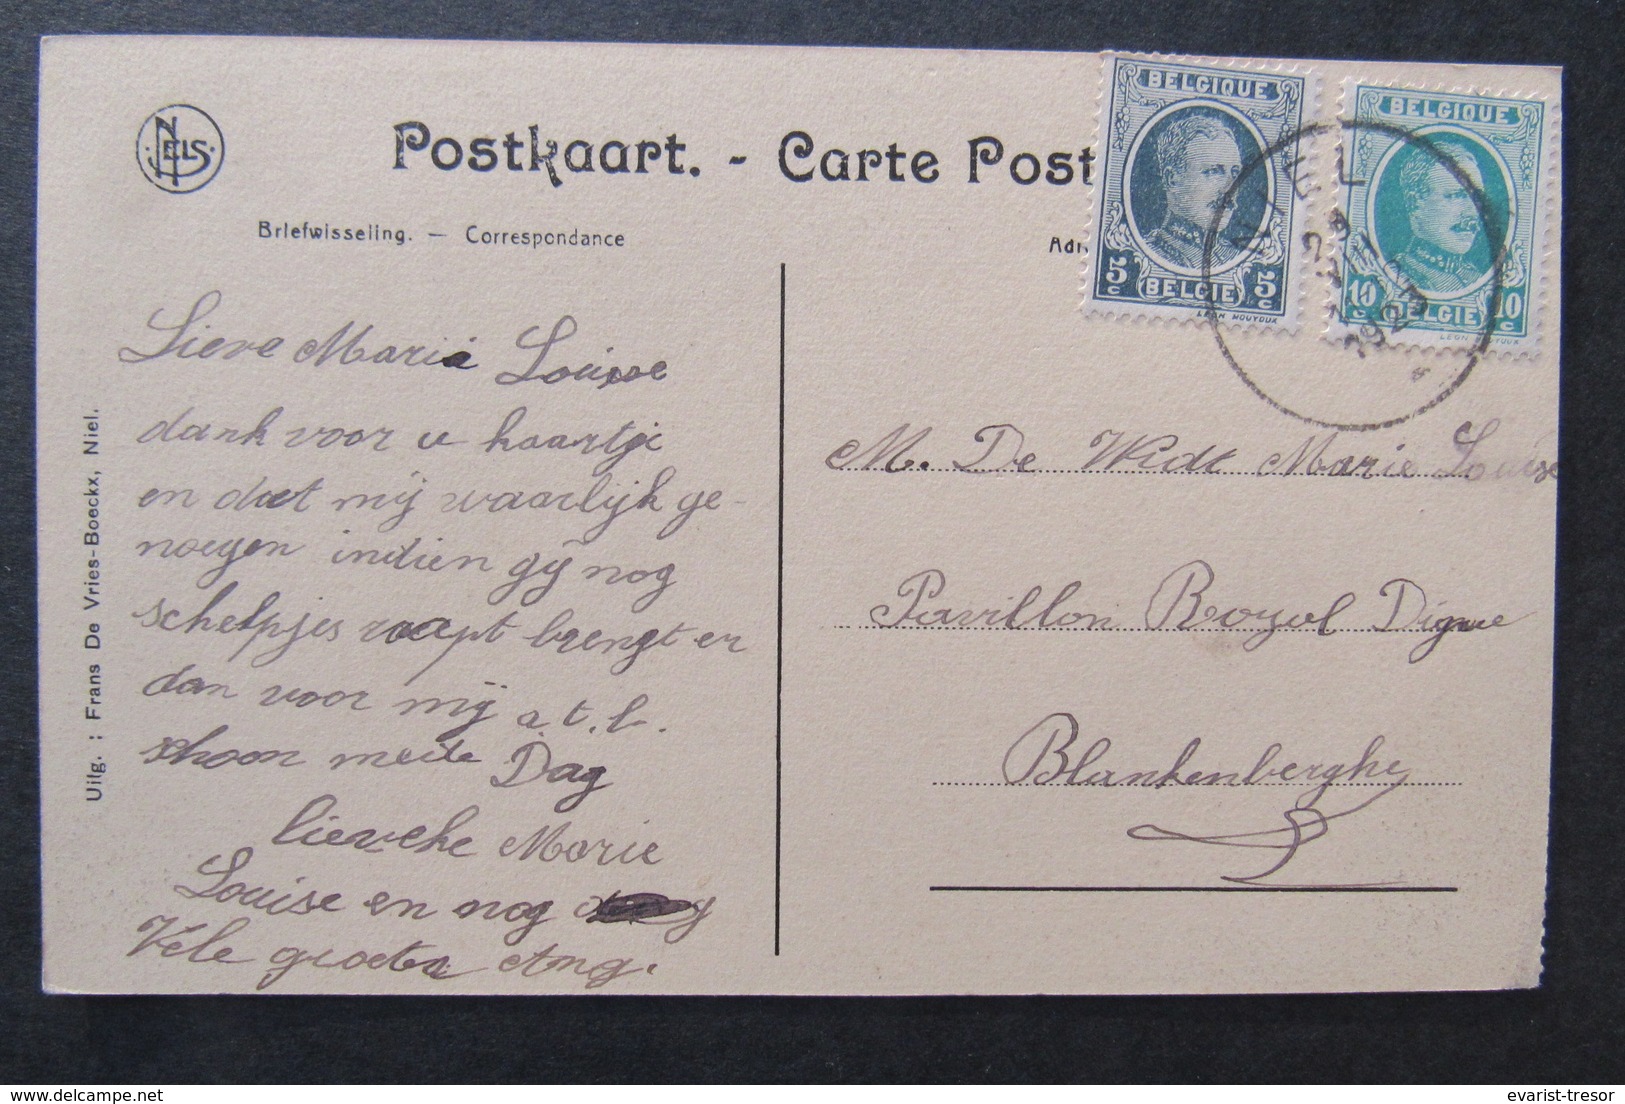 NELS
Postkaart. - Carte Post
Briefwisseling. — Correspondance
Adr
BELGIQUE
5c 5c
BELGIE
LEON HOUYOUX
BELGIQUE
10c 10c
BELGIE
LEON HOUYOUX
NIEL
Uitg. : Frans De Vries-Boeckx, Niel.
Lieve Maria Louise
dank voor u kaartje
en dat mij waarlijk ge-
noegen indien gij nog
schelpjes raapt brengt er
dan voor mij a.t.b.
schoon mede Dag
lieveke Marie
Louise en nog
Vele groeten Ang.
M. De Widt Marie Louise
Pavillon Royal Digue
Blankenberghe
delcampe.net
evarist-tresor